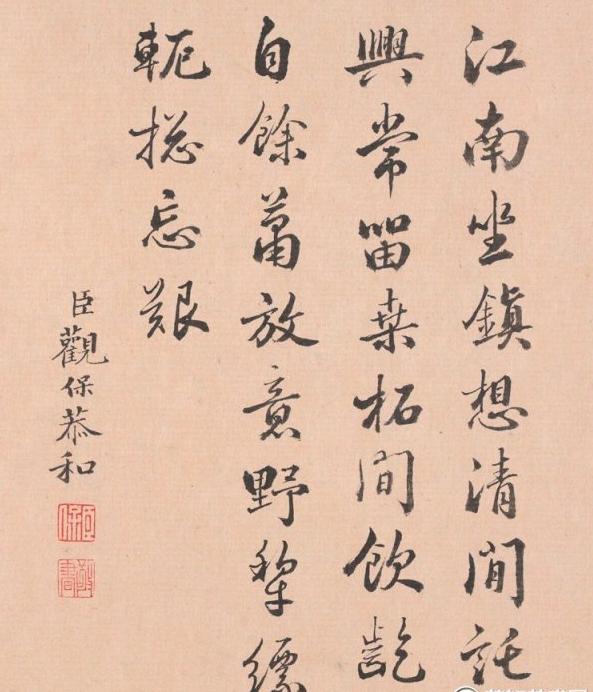 江南坐鎮想清閒託
興常留桒柘間飲齕
自餘蕭放意野犂縹
軛揔忘艱
臣觀保恭和
臣保